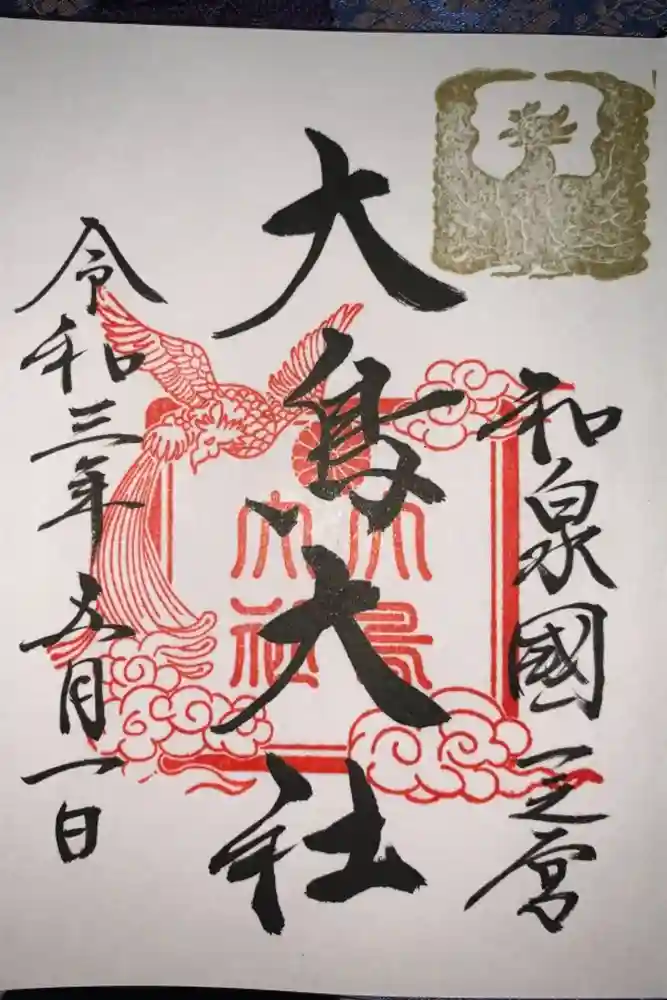 和泉國一之宮
大鳥大社
大鳥大社
令和三年五月一日